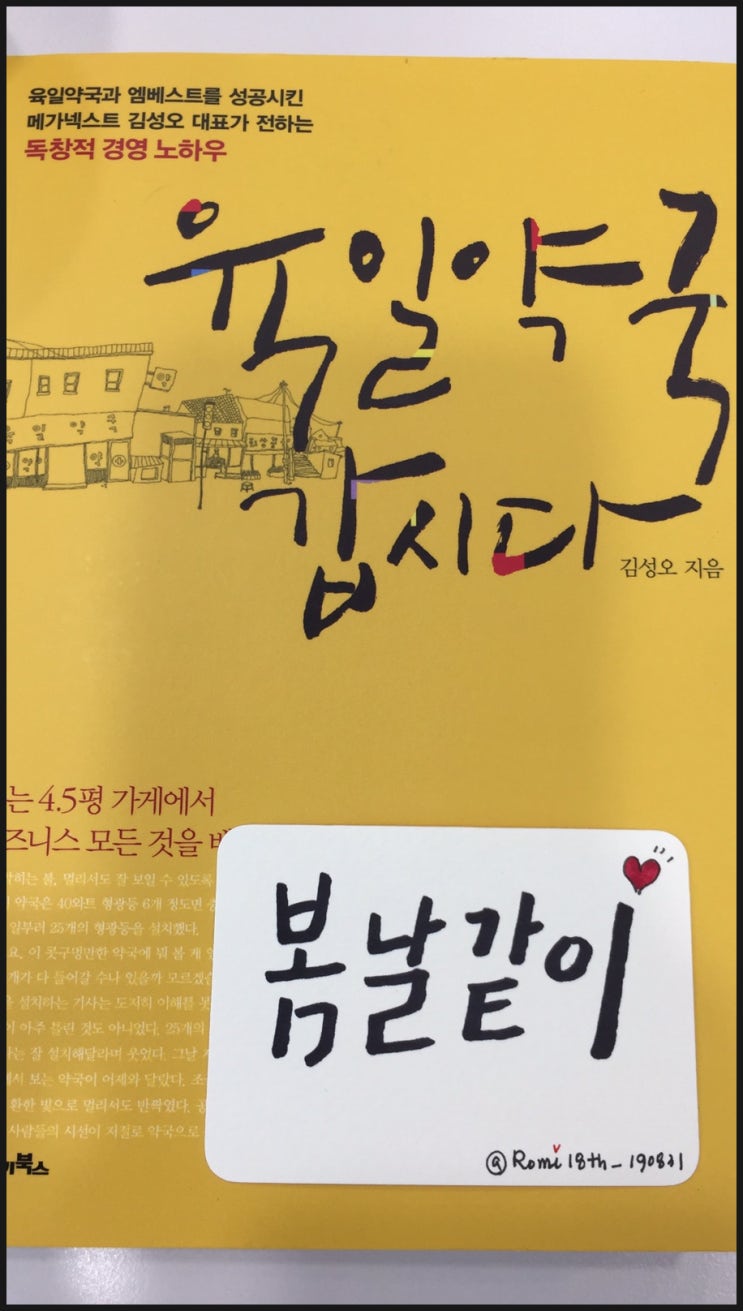 육일약국과 엠베스트를 성공시킨
메가넥스트 김성오 대표가 전하는
독창적 경영 노하우
육일약국
갑시다
김성오 지음
육일약국
약
는 4.5평 가게에서
즈니스 모든 것을
히는 불, 멀리서도 잘 보일 수 있도록
약국은 40와트 형광등 6개 정도면
일부러 25개의 형광등을 설치했다.
요. 이 콧구멍만한 약국에 뭐 볼 게
개가 다 들어갈 수나 있을까 모르겠
설치하는 기사는 도저히 이해를
이 아주 틀린 것도 아니었다. 25개의
는 잘 설치해달라며 웃었다. 그날
서 보는 약국이 어제와 달랐다.
환한 빛으로 멀리서도 반짝였다.
사람들의 시선이 저절로 약국으로
북스
봄날같이
@Romi 18th_190821